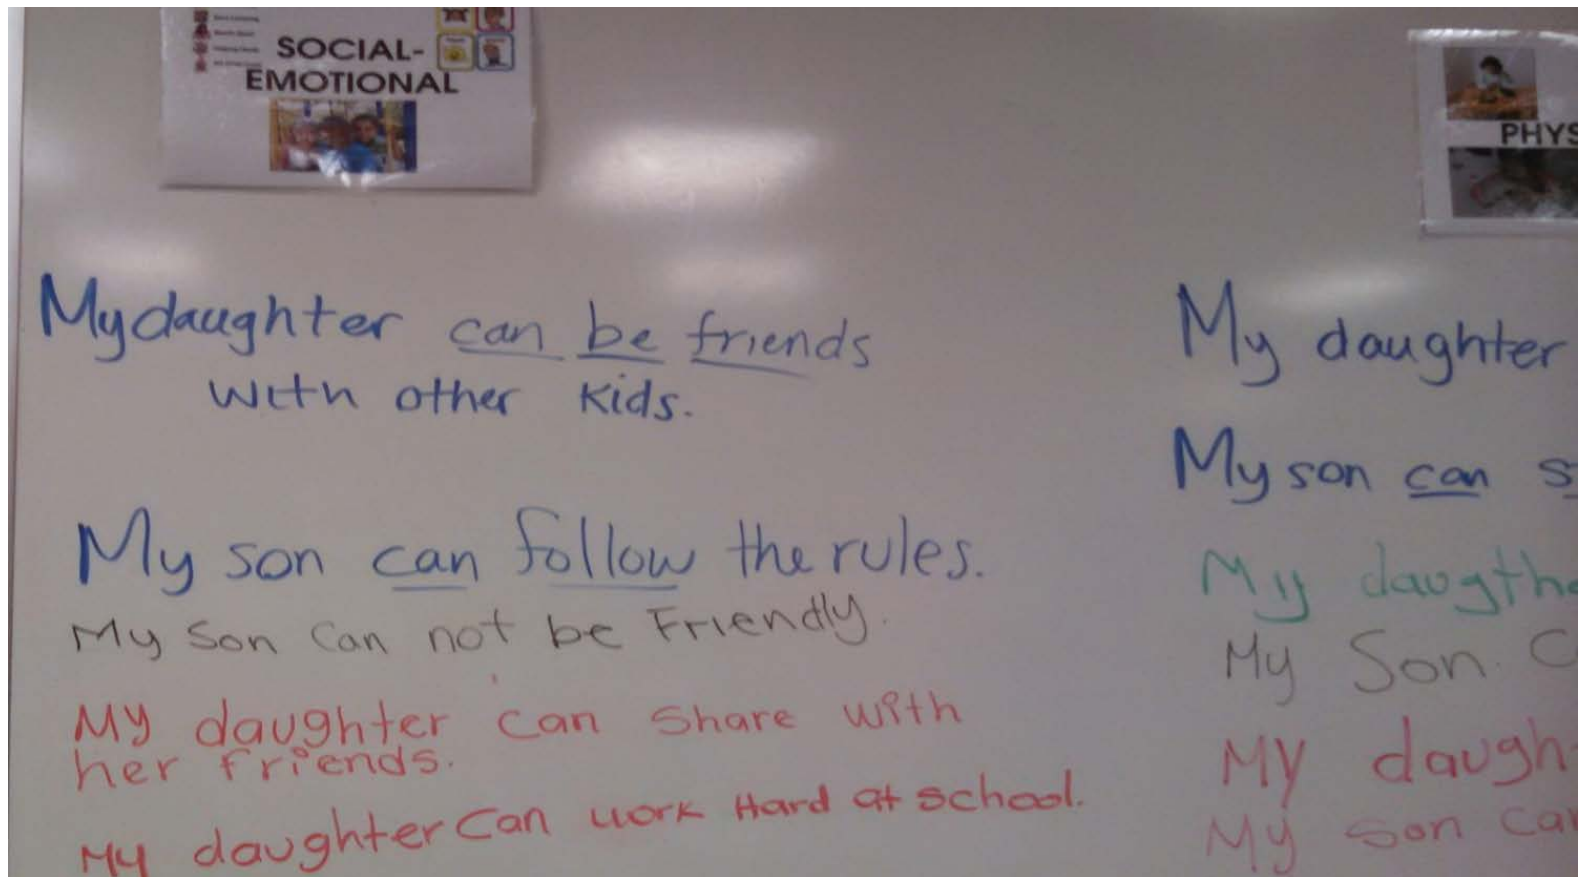 SOCIAL-
EMOTIONAL
My daughter can be friends
with other kids.
My son can follow the rules.
My Son Can not be Friendly.
My daughter can share with
her friends.
My daughter Can work Hard at school.
PHYS
My daughter
My son can s
My daugthe
My Son C
My daugh
My son Ca